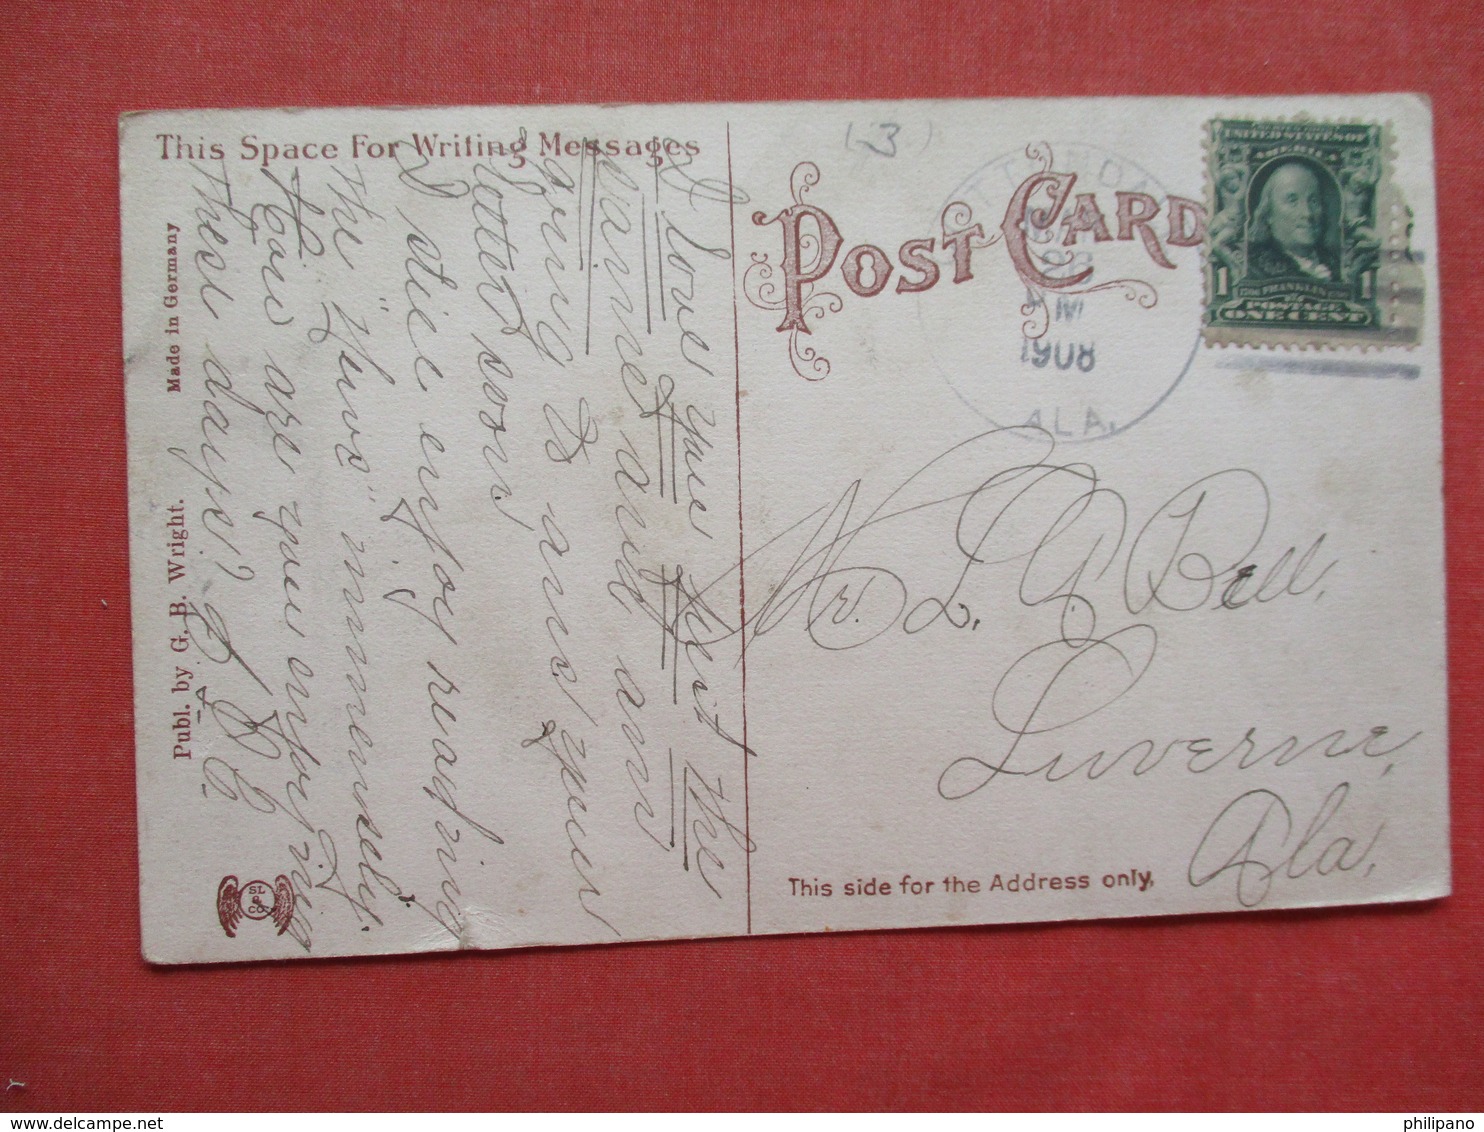 This Space For Writing Messages
I love you just the
same and am
going to ans' your
letter soon.
I still enjoy reading
the "News" immensely.
How are you enjoying
these days?
Made in Germany
Publ. by G. B. Wright.
SL
&
CO
POST CARD
(3)
28
M
1908
ALA.
UNITED STATES OF
AMERICA
1 FRANKLIN 1
POSTAGE
ONE CENT
Mr. L. C. Bell,
Luverne,
Ala.
This side for the Address only.
philipano